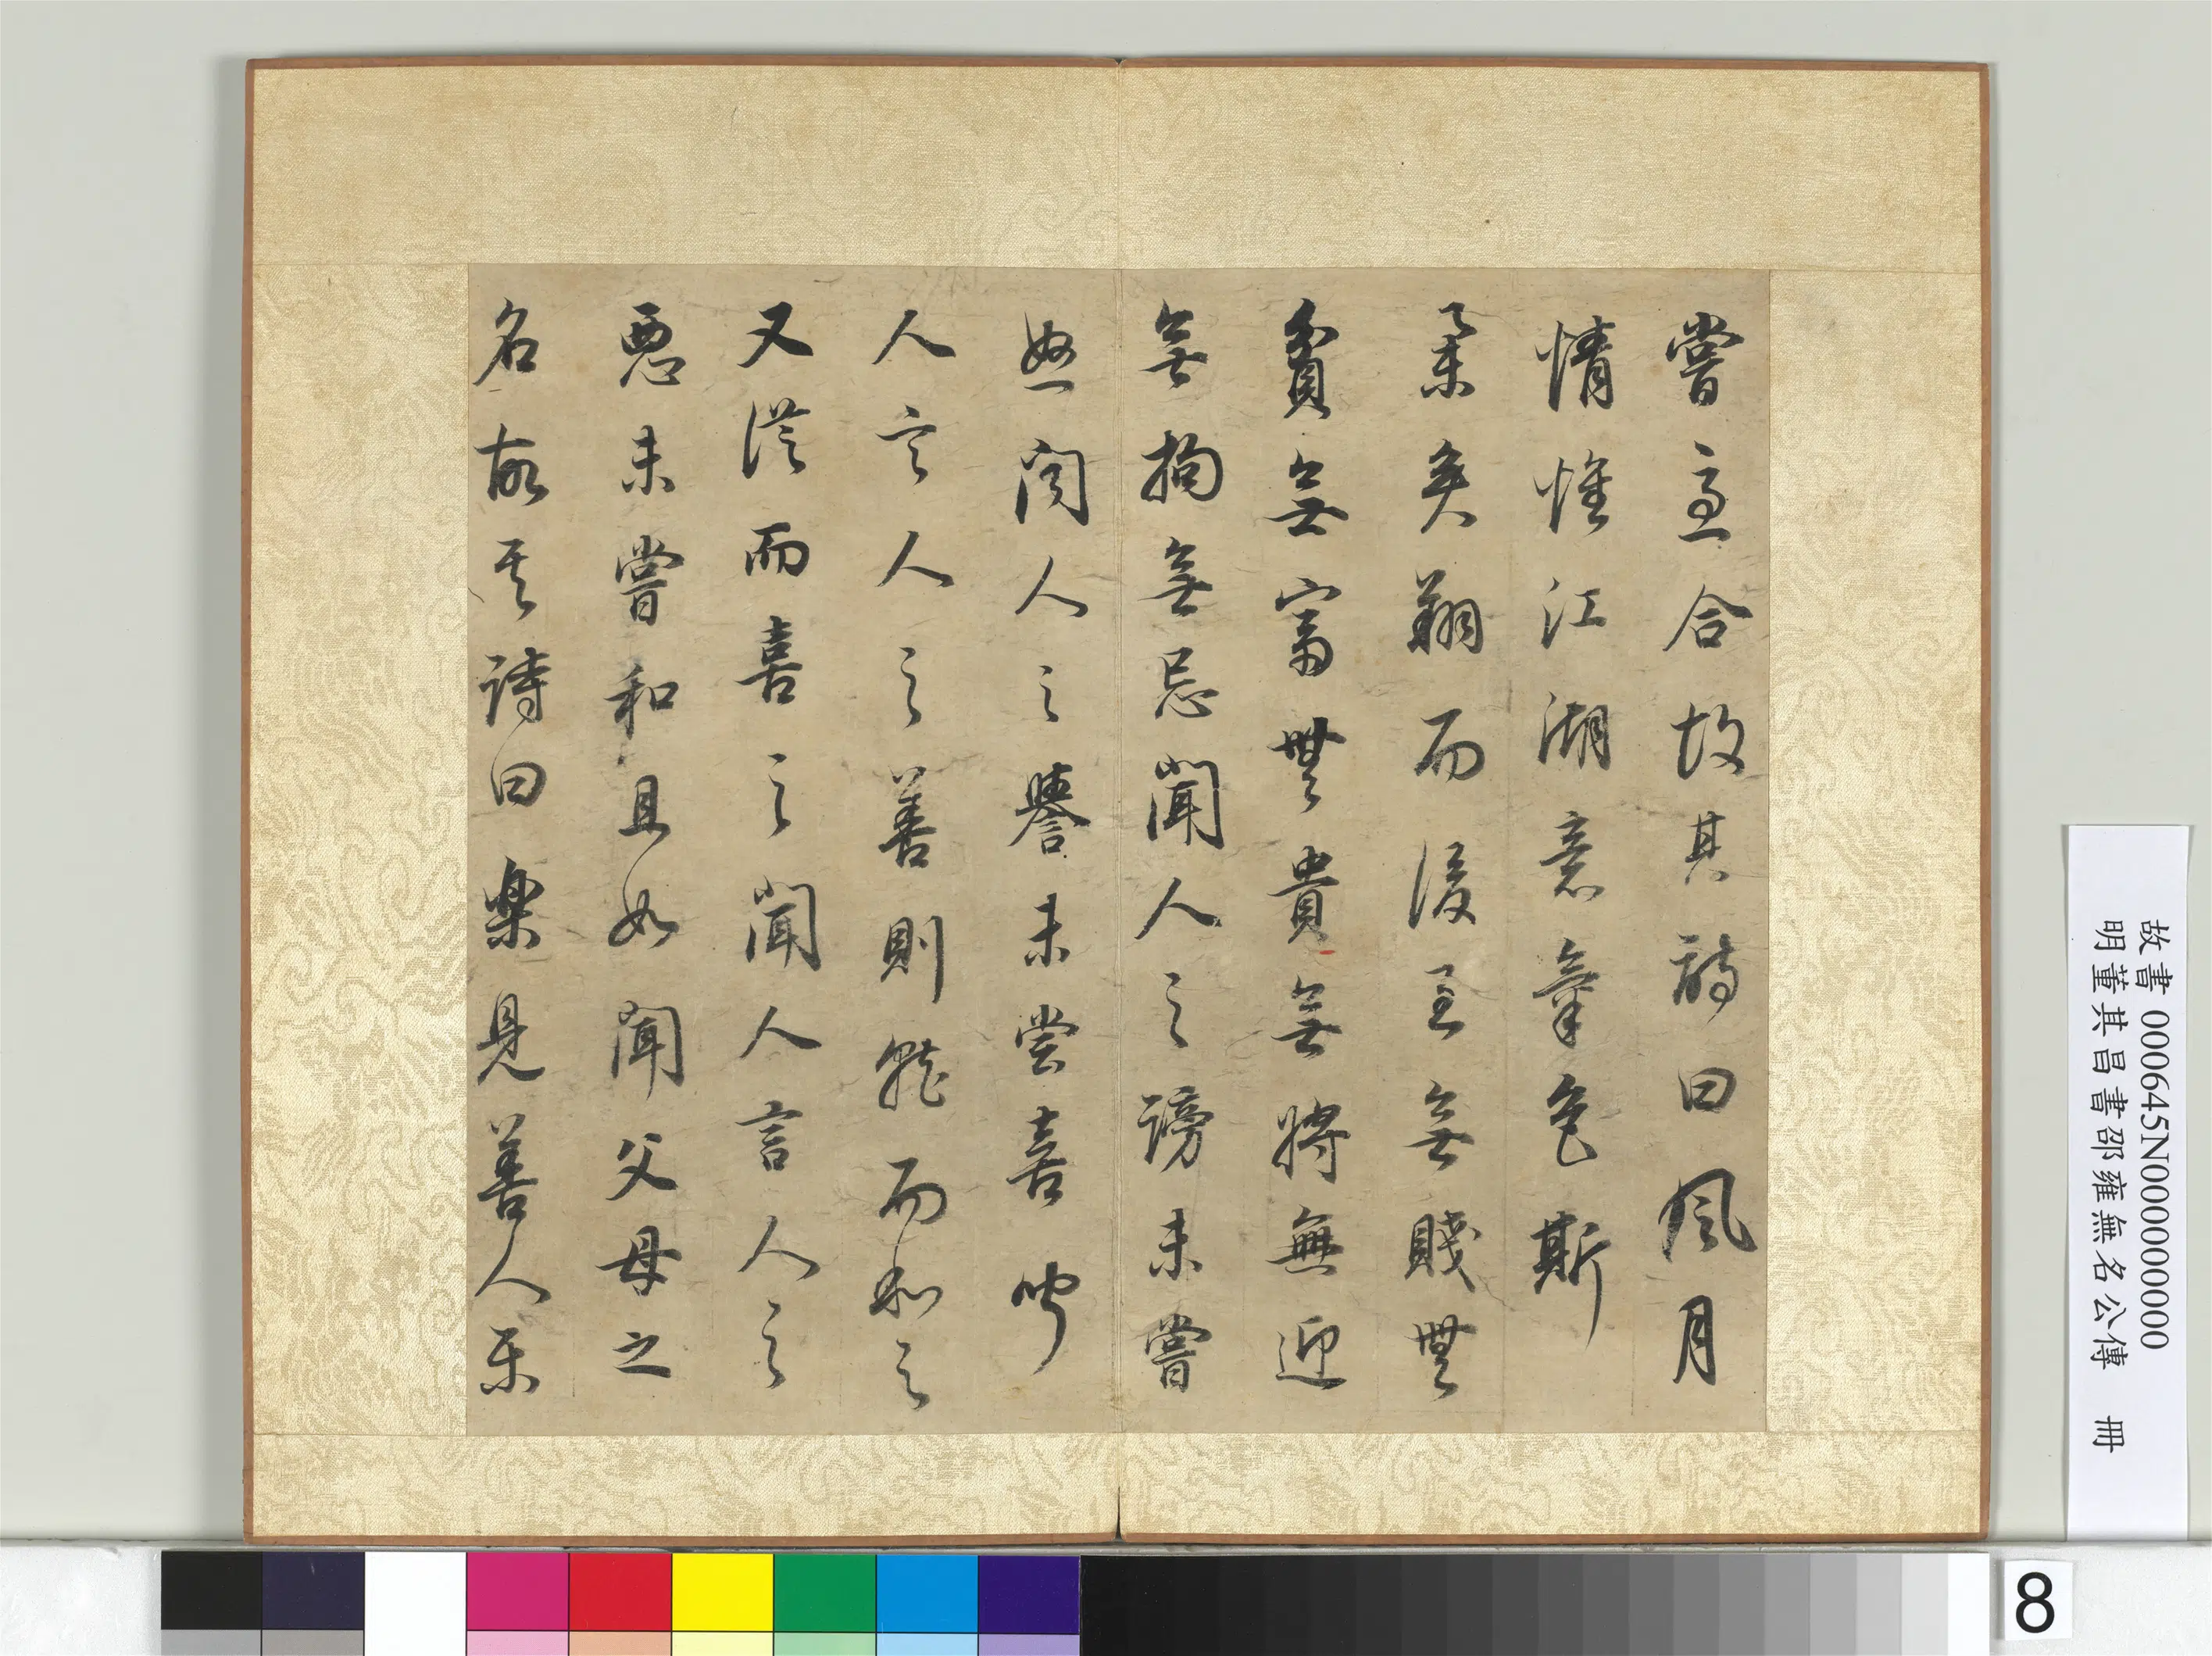 嘗合故其詩曰風月
情惟江湖意氣色斯
舉矣翔而後至無賤無
貧無富無貴無將無迎
無拘無忌聞人之謗未嘗
怒聞人之譽未嘗喜聞
人言人之善則就而和之
又從而喜之聞人言人之
惡未嘗和且如聞父母之
名故其詩曰樂見善人樂
故書 000645N000000000
明董其昌書邵雍無名公傳 冊
8